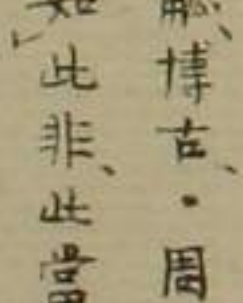 博古、・周
如此非、此當